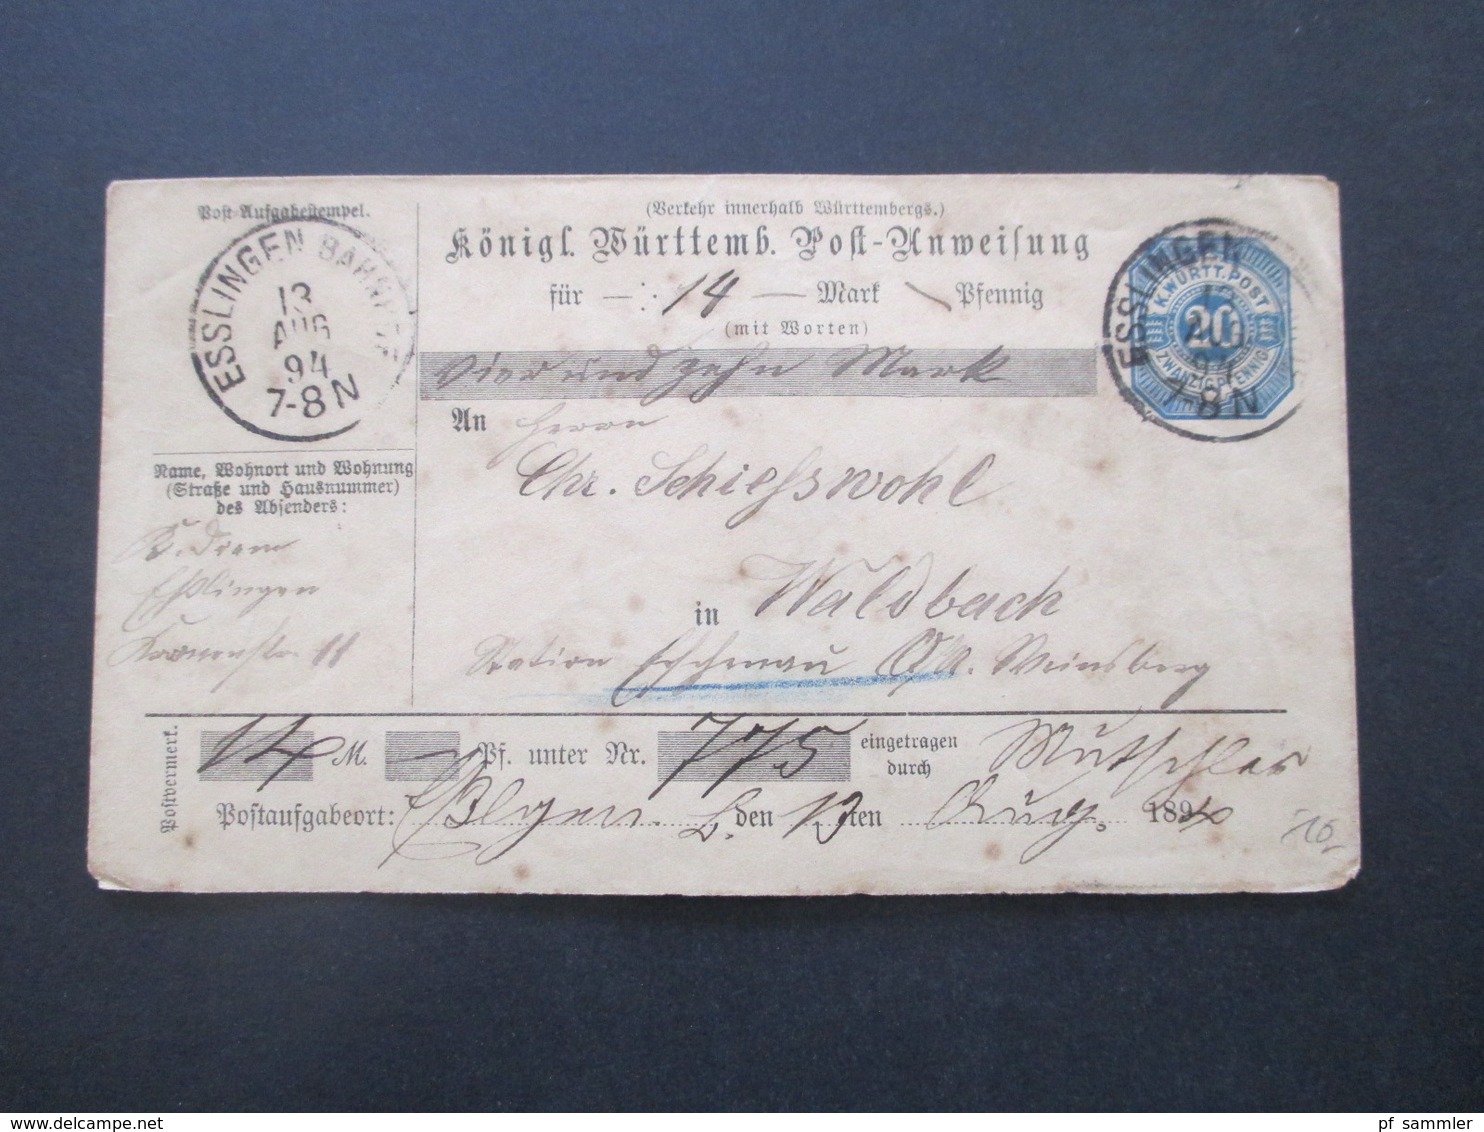 Post-Aufgabestempel.
ESSLINGEN BAHNHOF
13
AUG
94
7-8 N
(Verkehr innerhalb Württembergs.)
Königl. Württemb. Post-Anweisung
für — 14 — Mark Pfennig
(mit Worten)
vierundzehn Mark
An Herrn
Chr. Schiesswohl
in Waldbach
Station Eschenau O/A. Weinsberg
K. WÜRTT. POST
20
ZWANZIG PFENNIG
ESSLINGEN
7-8 N
Name, Wohnort und Wohnung
(Straße und Hausnummer)
des Absenders:
Esslingen
11
Postvermerk.
14 M. — Pf. unter Nr. 775 eingetragen
durch Mutschler
Postaufgabeort: den 13ten Aug. 1894
10-
pf_sammler
www.delcampe.net